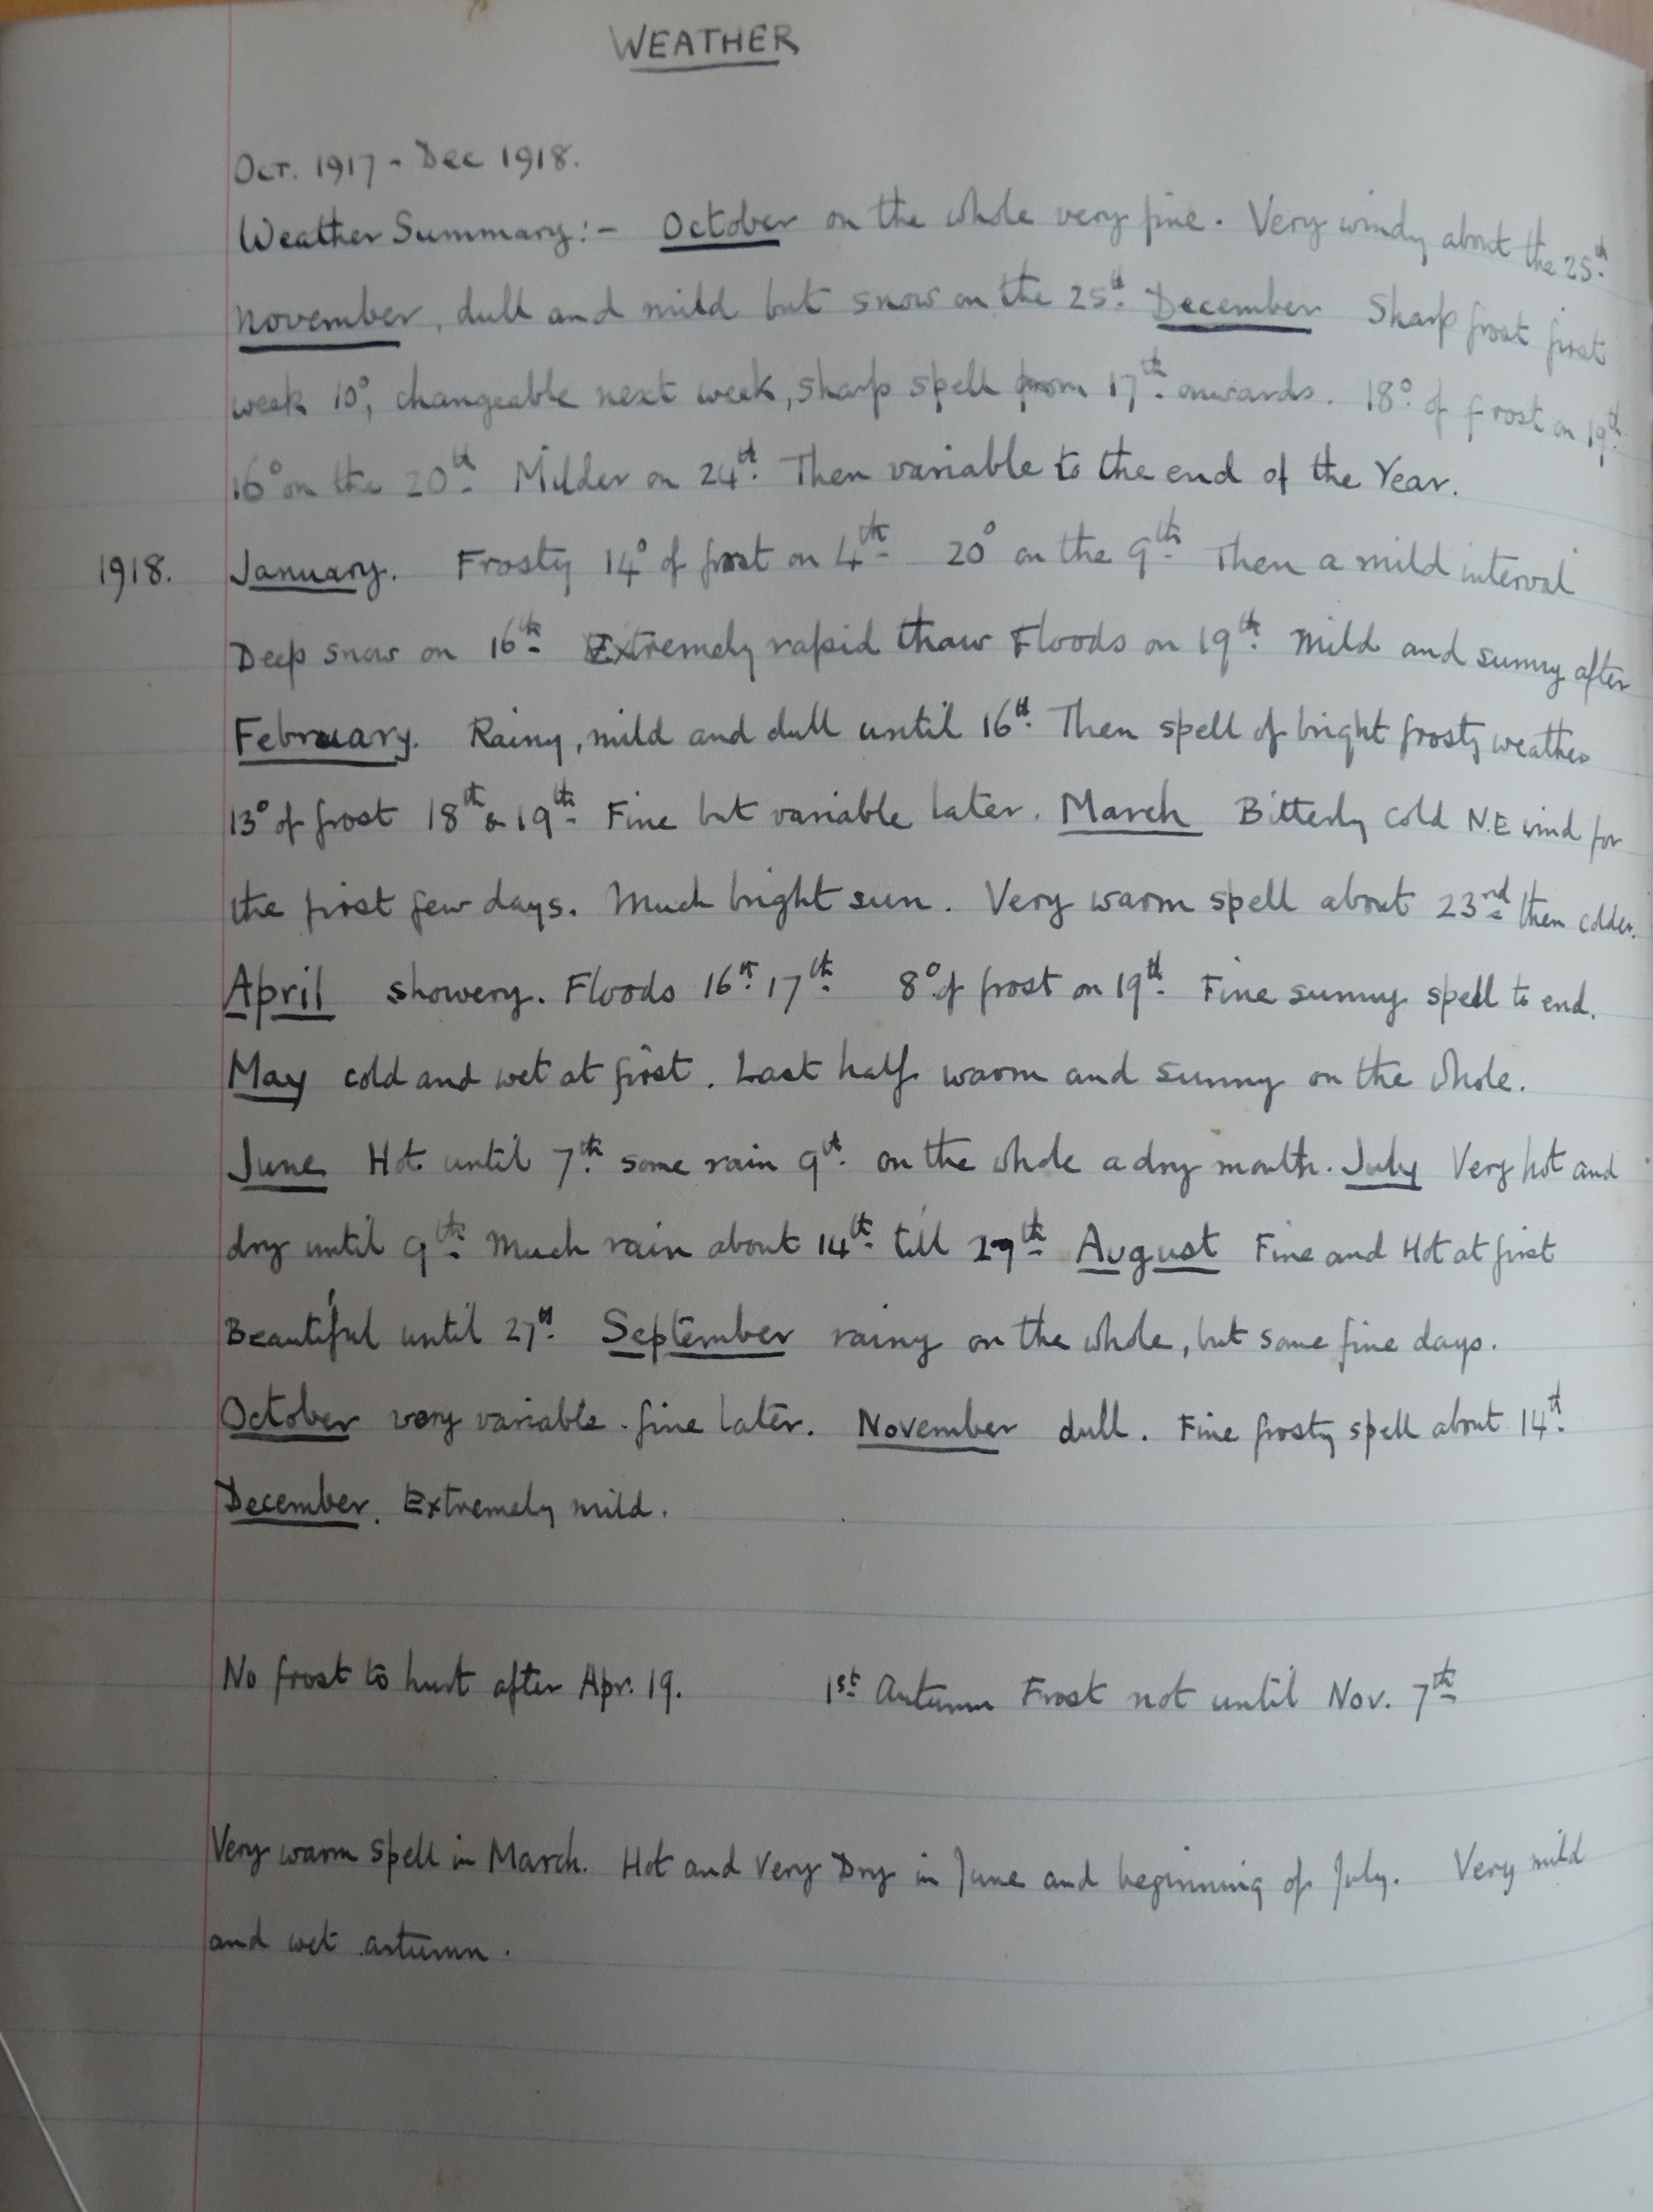 WEATHER
Oct. 1917 - Dec 1918.
Weather Summary:- October on the whole very fine. Very windy about the 25th.
November, dull and mild but snow on the 25th. December Sharp frost first
week 10°, changeable next week, sharp spell from 17th. onwards. 18° of frost on 19th.
16° on the 20th. Milder on 24th. Then variable to the end of the Year.
1918. January. Frosty 14° of frost on 4th 20° on the 9th Then a mild interval
Deep snow on 16th Extremely rapid thaw Floods on 19th. Mild and sunny after
February. Rainy, mild and dull until 16th. Then spell of bright frosty weather
13° of frost 18th & 19th Fine but variable later. March Bitterly cold N.E wind for
the first few days. Much bright sun. Very warm spell about 23rd then colder.
April showery. Floods 16th. 17th. 8° of frost on 19th. Fine sunny spell to end.
May cold and wet at first. Last half warm and sunny on the whole.
June Hot until 7th. some rain 9th. on the whole a dry month. July Very hot and
dry until 9th. Much rain about 14th. till 29th August Fine and Hot at first
Beautiful until 27th. September rainy on the whole, but some fine days.
October very variable. fine later. November dull. Fine frosty spell about 14th.
December. Extremely mild.
No frost to hurt after Apr. 19. 1st Autumn Frost not until Nov. 7th
Very warm spell in March. Hot and Very Dry in June and beginning of July. Very mild
and wet autumn.